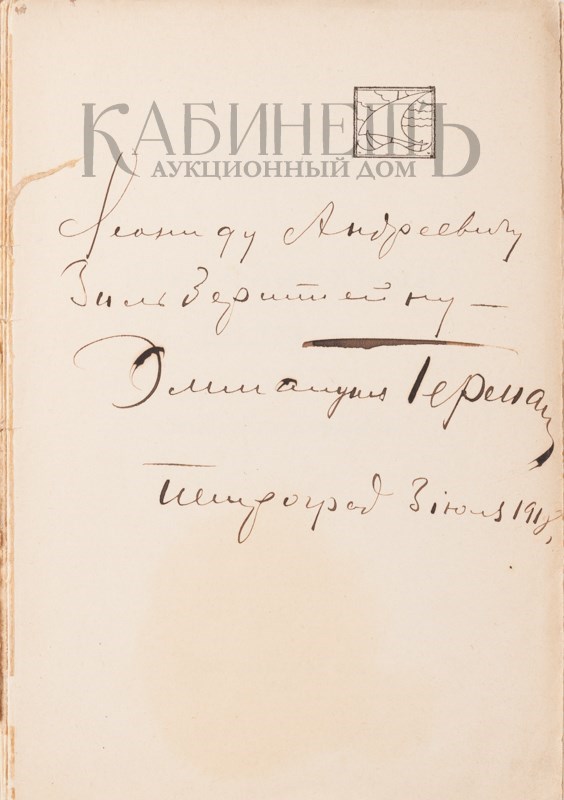 КАБИНЕТЪ
АУКЦИОННЫЙ ДОМ
Леониду Андреевичу
Зильберштейну —
Эммануил Герман
Петроград 3 июля 1918,